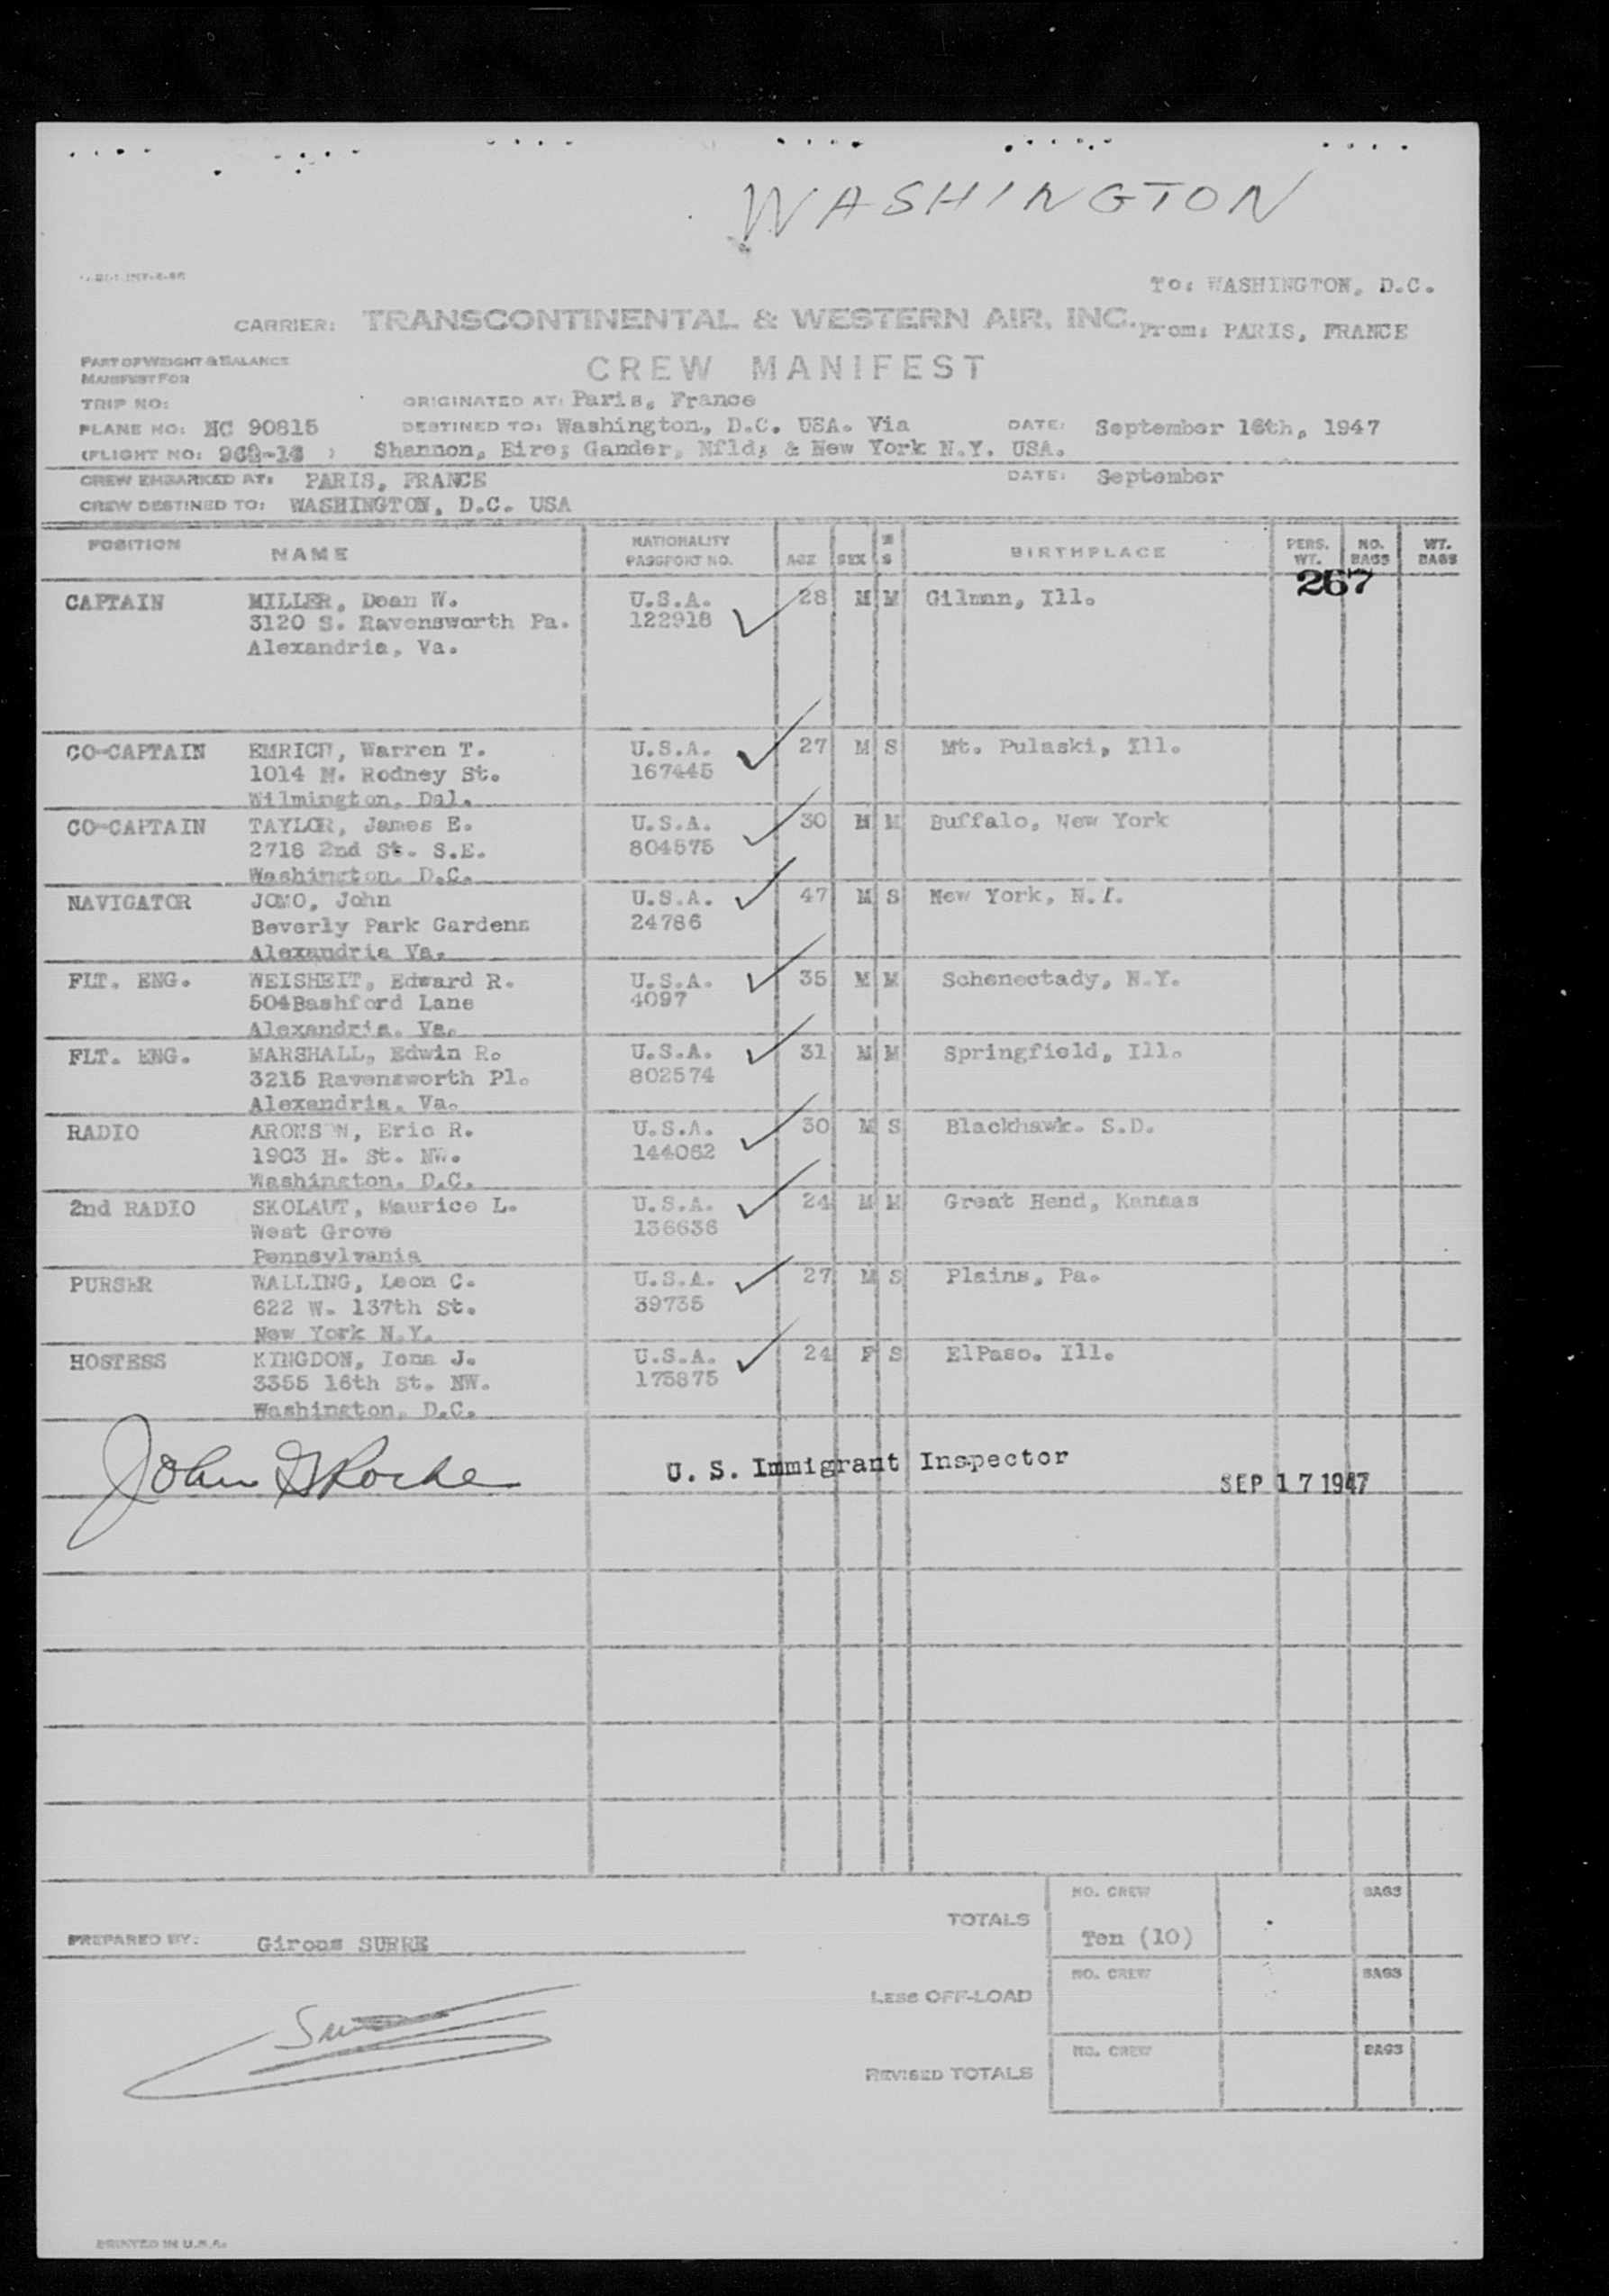 WASHINGTON
To: WASHINGTON, D.C.
CARRIER: TRANSCONTINENTAL & WESTERN AIR, INC. From: PARIS, FRANCE
PART OF WEIGHT & BALANCE
MANIFEST FOR
CREW MANIFEST
TRIP NO: ORIGINATED AT: Paris, France
PLANE NO: NC 90815 DESTINED TO: Washington, D.C. USA. Via DATE: September 16th, 1947
(FLIGHT NO: ) Shannon, Eire; Gander, Nfld; & New York N.Y. USA.
CREW EMBARKED AT: PARIS, FRANCE DATE: September
CREW DESTINED TO: WASHINGTON, D.C. USA
POSITION NAME NATIONALITY PASSPORT NO. AGE SEX M S BIRTHPLACE PERS. WT. NO. BAGS WT. BAGS
267
CAPTAIN MILLER, Dean W. U.S.A. 28 M M Gilman, Ill.
3120 S. Ravensworth Pa. 122918
Alexandria, Va.
CO-CAPTAIN EMRICH, Warren T. U.S.A. 27 M S Mt. Pulaski, Ill.
1014 N. Rodney St. 167445
Wilmington, Del.
CO-CAPTAIN TAYLOR, James E. U.S.A. 30 M M Buffalo, New York
2718 2nd St. S.E. 804575
Washington, D.C.
NAVIGATOR JOMO, John U.S.A. 47 M S New York, N.Y.
Beverly Park Gardens 24786
Alexandria Va.
FLT. ENG. WEISHEIT, Edward R. U.S.A. 35 M M Schenectady, N.Y.
504Bashford Lane 4097
Alexandria, Va.
FLT. ENG. MARSHALL, Edwin R. U.S.A. 31 M M Springfield, Ill.
3215 Ravensworth Pl. 802574
Alexandria, Va.
RADIO ARONS N, Eric R. U.S.A. 30 M S Blackhawk. S.D.
1903 H. St. NW. 144062
Washington, D.C.
2nd RADIO SKOLAUT, Maurice L. U.S.A. 24 M M Great Hend, Kansas
West Grove 136636
Pennsylvania
PURSER WALLING, Leon C. U.S.A. 27 M S Plains, Pa.
622 W. 137th St. 39735
New York N.Y.
HOSTESS KINGDON, Iona J. U.S.A. 24 F S ElPaso. Ill.
3355 16th St. NW. 175875
Washington, D.C.
John Roche U. S. Immigrant Inspector SEP 17 1947
NO. CREW BAGS
TOTALS Ten (10)
PREPARED BY: SURRE
NO. CREW BAGS
LESS OFF-LOAD
NO. CREW BAGS
REVISED TOTALS
PRINTED IN U.S.A.